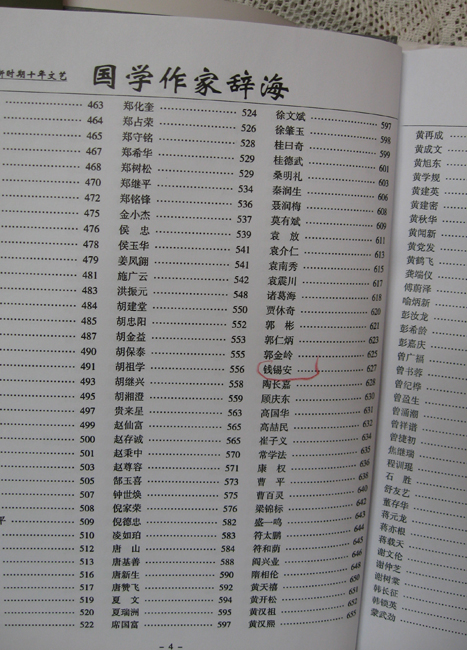 新时期十年文艺
国学作家辞海
463
464
465
467
468
470
472
475
476
478
479
481
483
484
485
487
490
491
493
495
497
499
500
501
505
508
平 509
510
512
513
516
517
519
520
522
郑化奎 524
郑占荣 526
郑守铭 528
郑希华 529
郑树松 529
郑继平 534
郑铭锋 536
金小杰 537
侯 忠 539
侯玉华 541
姜凤翮 541
施广云 542
洪振元 548
胡建堂 550
胡忠阳 552
胡金益 553
胡保泰 555
胡祖学 556
胡继兴 558
胡湘澄 559
贵来星 563
赵仙富 565
赵存诚 565
赵秉中 570
赵尊容 571
郜玉喜 573
钟世焕 575
倪家荣 576
倪德忠 582
凌如珀 583
唐 山 584
唐基善 588
唐新生 590
唐赞飞 592
夏 文 594
夏瑞洲 595
席国富 597
徐文斌 597
徐肇玉 598
桂曰奇 599
桂德武 601
桑明礼 603
秦润生 606
聂润梅 608
莫有斌 609
袁 放 611
袁介仁 613
袁南秀 615
袁震川 617
诸葛海 618
贾休奇 620
郭 彬 621
郭仁炳 623
郭金岭 625
钱锡安 627
陶长嘉 628
顾庆东 630
高国华 631
高喆民 632
崔子义 634
常学法 635
康 权 636
曹 平 638
曹百灵 640
梁锦标 642
盛一鸣 643
符太鹏 644
符和荫 645
阎兴业 646
隋相伦 648
黄天禧 650
黄开松 651
黄汉祖 652
黄汉熙 655
黄再成
黄成文
黄旭东
黄学规
黄建英
黄建密
黄秋华
黄闻新
黄党发
黄鹤飞
龚端仪
傅蔚泽
喻炳新
彭汝龙
彭希龄
彭嘉庆
曾广福
曾书蓉
曾纪桦
曾盈生
曾蒲湘
曾祥谱
曾捷初
焦继瑞
程训琨
石 胜
舒友艺
董存华
蒋元龙
蒋亦根
蒋载天
谢文伦
谢仲芝
谢树棠
韩长征
韩锁英
蒙武劲
- 4 -